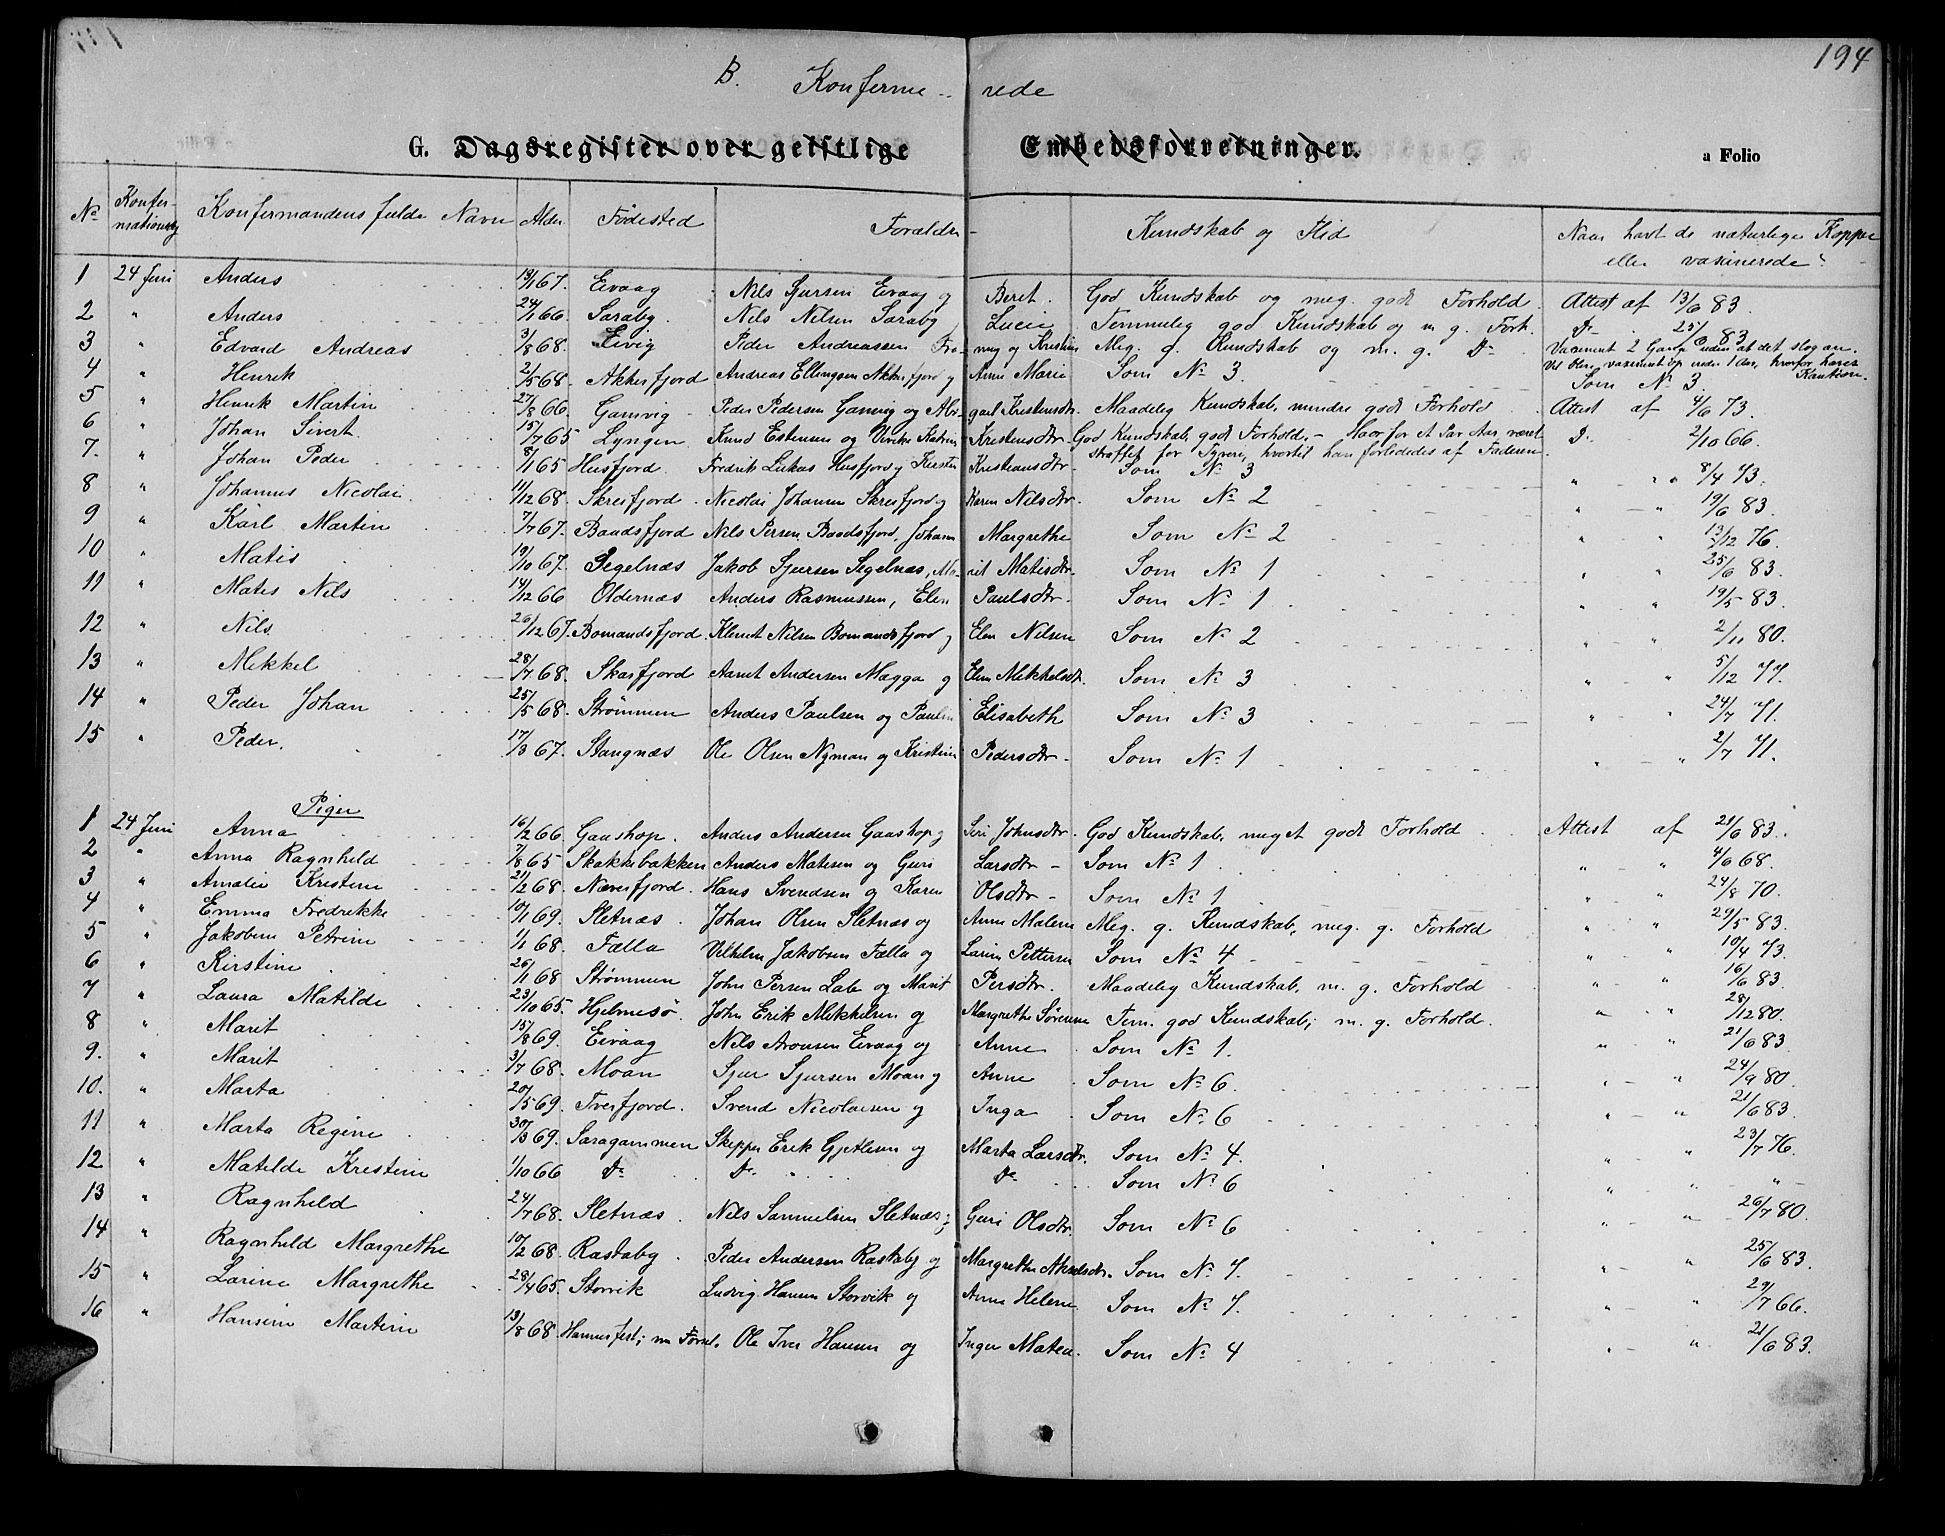 194
B. Konferme- rede
G. Dagsregister over geistlige Embedsforretninger. a Folio
No Konfermationsdag Konfermandens fulde Navn Alder Fødested Forældre Kundskab og Flid Naar havt de naturlige Koppe
eller vaxinerede?
1 24 Juni Anders 19/1 67. Eivaag Nils Sjursen Eivaag og Beret. God Kundskab og meg. godt Forhold. Attest af 13/6 83.
2 " Anders 24/1 66. Saraby. Nils Nilsen Saraby Lucie Temmelig god Kundskab og m. g. Forh. Do 25/6 83.
3 " Edvard Andreas 3/8 68. Eivig Peder Andreassen Fro- ning og Kristine Meg. g. Kundskab og m. g. Do Vaxinert 2 Gange uden at det slog an.
4 " Henrik 2/5 68. Akkerfjord Andreas Ellingsen Akkerfjord og Anne Marie Som No 3. Som No 3
5 " Henrik Martin 27/8 66. Gamvig Peder Pedersen Gamvig og Abi- gael Kristensdtr. Maadelig Kundskab, mindre godt Forhold Attest af 4/6 73.
6 " Johan Sivert 15/7 65 Lyngen Knud Estensen og Katrine Kristensdtr. God Kundskab, godt Forhold. - Har for et Par Aar været D. 2/10 66.
straffet for Tyveri, hvortil han forlededes af Faderen.
7. " Johan Peder 8/1 65 Husfjord. Fredrik Lukas Husfjord og Kirsten Kristiansdtr. Som No 3 " " 8/4 73.
8 " Johannes Nicolai 11/12 68. Skreifjord. Nicolai Johansen Skreifjord og Karen Nilsdtr. Som No 2 " " 19/6 83.
9 " Karl Martin 7/7 67. Baadsfjord Nils Persen Baadsfjord, Johanne Margrethe Som No 2 " " 13/12 76.
10 " Matis 19/10 67. Segelnæs Jakob Sjursen Segelnæs, Ma- rit Matisdtr. Som No 1 " " 25/6 83.
11 " Mates Nils 14/12 66 Oldernæs Anders Rasmussen, Elen Paulsdtr. Som No 1 " " 19/5 83.
12 " Nils 26/12 67. Bomandsfjord. Klemet Nilsen Bomandsfjord og Elen Nilsen Som No 2 " " 2/11 80.
13 " Mikkel 28/7 68. Skarfjord Aamt Andersen Magga og Elen Mikkelsdtr. Som No 3 " " 5/12 77.
14 " Peder Johan 25/5 68. Strømmen Anders Paulsen og Pauline Elisabeth Som No 3 " " 24/7 71.
15 " Peder. 17/3 67. Stangnæs Ole Olsen Nyman og Kristine Pedersdtr. Som No 1 " " 2/7 71.
Piger
1 24 Juni Anna 16/2 66 Gaashop. Anders Andersen Gaashop og Siri Johnsdtr. God Kundskab, meget godt Forhold. Attest af 21/6 83.
2 " Anna Ragnhild 7/8 65 Skakkebakken Anders Matisen og Guri Larsdtr - Som No 1. " " 4/6 68.
3 " Amalie Kristine 21/2 68. Næverfjord. Hans Svendsen og Karen Olsdtr - Som No 1. " " 24/8 70.
4 " Emma Fredrikke 10/1 69. Sletnæs. Johan Olsen Sletnæs og Anne Malene Meg. g. Kundskab, meg. g. Forhold " " 29/5 83.
5 " Jakobine Petrine 1/1 68. Fælla Vilhelm Jakobsen Fælla og Larine Pettersen Som No 4 " " 10/4 73.
6 " Kirstine 26/1 68 Strømmen John Persen Labe og Marit Persdtr. Maadelig Kundskab, m. g. Forhold " " 16/6 83.
7 " Laura Matilde 23/10 65. Hjelmesø John Erik Mikkelsen og Margrethe Sørensen Tem. god Kundskab; m. g. Forhold. " " 28/12 80.
8 " Marit 15/8 69. Eivaag Nils Aronsen Eivaag og Anne Som No 1. " " 21/6 83.
9. " Marit 3/7 68. Moan Sjur Sjursen Moan og Anne Som No 6. " " 24/9 80.
10. " Marta 20/5 69. Tverfjord. Svend Nicolaisen og Inga Som No 6 " " 21/6 83.
11 " Marta Regine 30/3 69. Saragammen Skipper Erik Gjetlesen og Marta Larsdtr. Som No 4. " " 23/7 76.
12 " Matilde Kristine 1/10 66 Do Do Do Som No 6 " " "
13 " Ragnhild 24/7 68. Sletnæs. Nils Samuelsen Sletnæs; Guri Olsdtr. Som No 6 " " 26/7 80.
14 " Ragnhild Margrethe 10/2 68. Rastaby. Peder Andersen Rastaby og Margrethe Akselsdtr. Som No 7. " " 25/6 83.
15 " Larine Margrethe 28/4 65. Storvik Ludvig Hansen Storvik og Anne Helene Som No 7. " " 29/7 66.
16 " Hansine Martine 13/8 68. Hammerfest; nu Forsøl. Ole Iver Hansen og Inger Matea. Som No 4 " " 21/6 83.